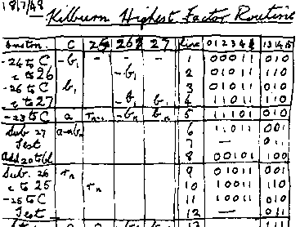 18/7/48
Kilburn Highest Factor Routine
C 25 26 27 line 01234 131415
-24 to C -b₁ - - - 1 00011 010
c to 26 -b₁ 2 01011 110
-26 to C b₁ 3 01011 010
c to 27 -b₁ b₁ 4 11011 110
-23 to C a 5 11101 010
Sub. 27 a-bₙ 6 11011 001
Test 7 — 011
Add 20 to bl. 8 00101 100
Sub. 26 rₙ 9 01011 001
c to 25 rₙ 10 10011 110
-25 to C 11 10011 010
Test 12 — 011
111